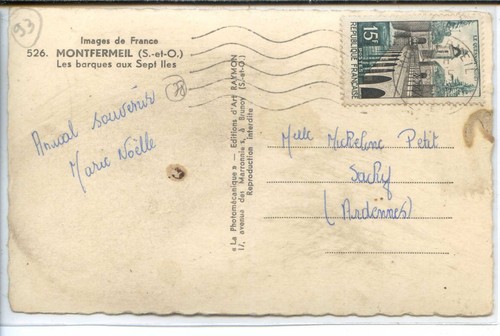 93
Images de France
526. MONTFERMEIL (S.-et-O.)
Les barques aux Sept Iles
78
Amical souvenir
Marie Noëlle
« La Photomécanique » — Editions d'Art RAYMON
17, avenue des Marronniers, à Brunoy (S.-et-O.)
Reproduction interdite
15F
REPUBLIQUE FRANÇAISE
LE QUESNOY
Melle Micheline Petit
Sachy
(Ardennes)